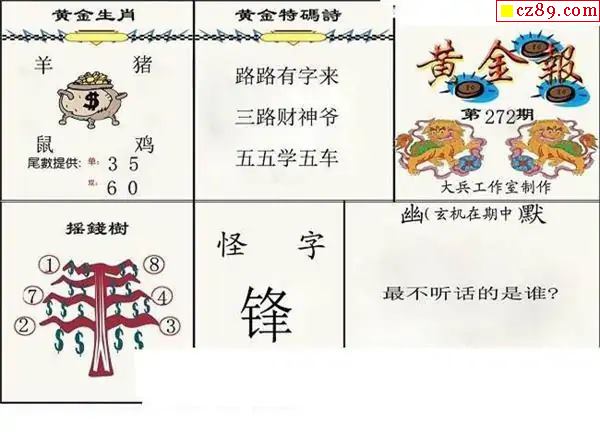 cz89.com
黄金生肖
羊 猪
$
鼠 鸡
尾數提供: 单: 3 5
双: 6 0
黄金特碼詩
路路有字来
三路财神爷
五五学五车
黄金報
第272期
大兵工作室制作
摇錢樹
① ⑧
⑦ ④
② ③
怪字
锋
幽(玄机在期中)默
最不听话的是谁?